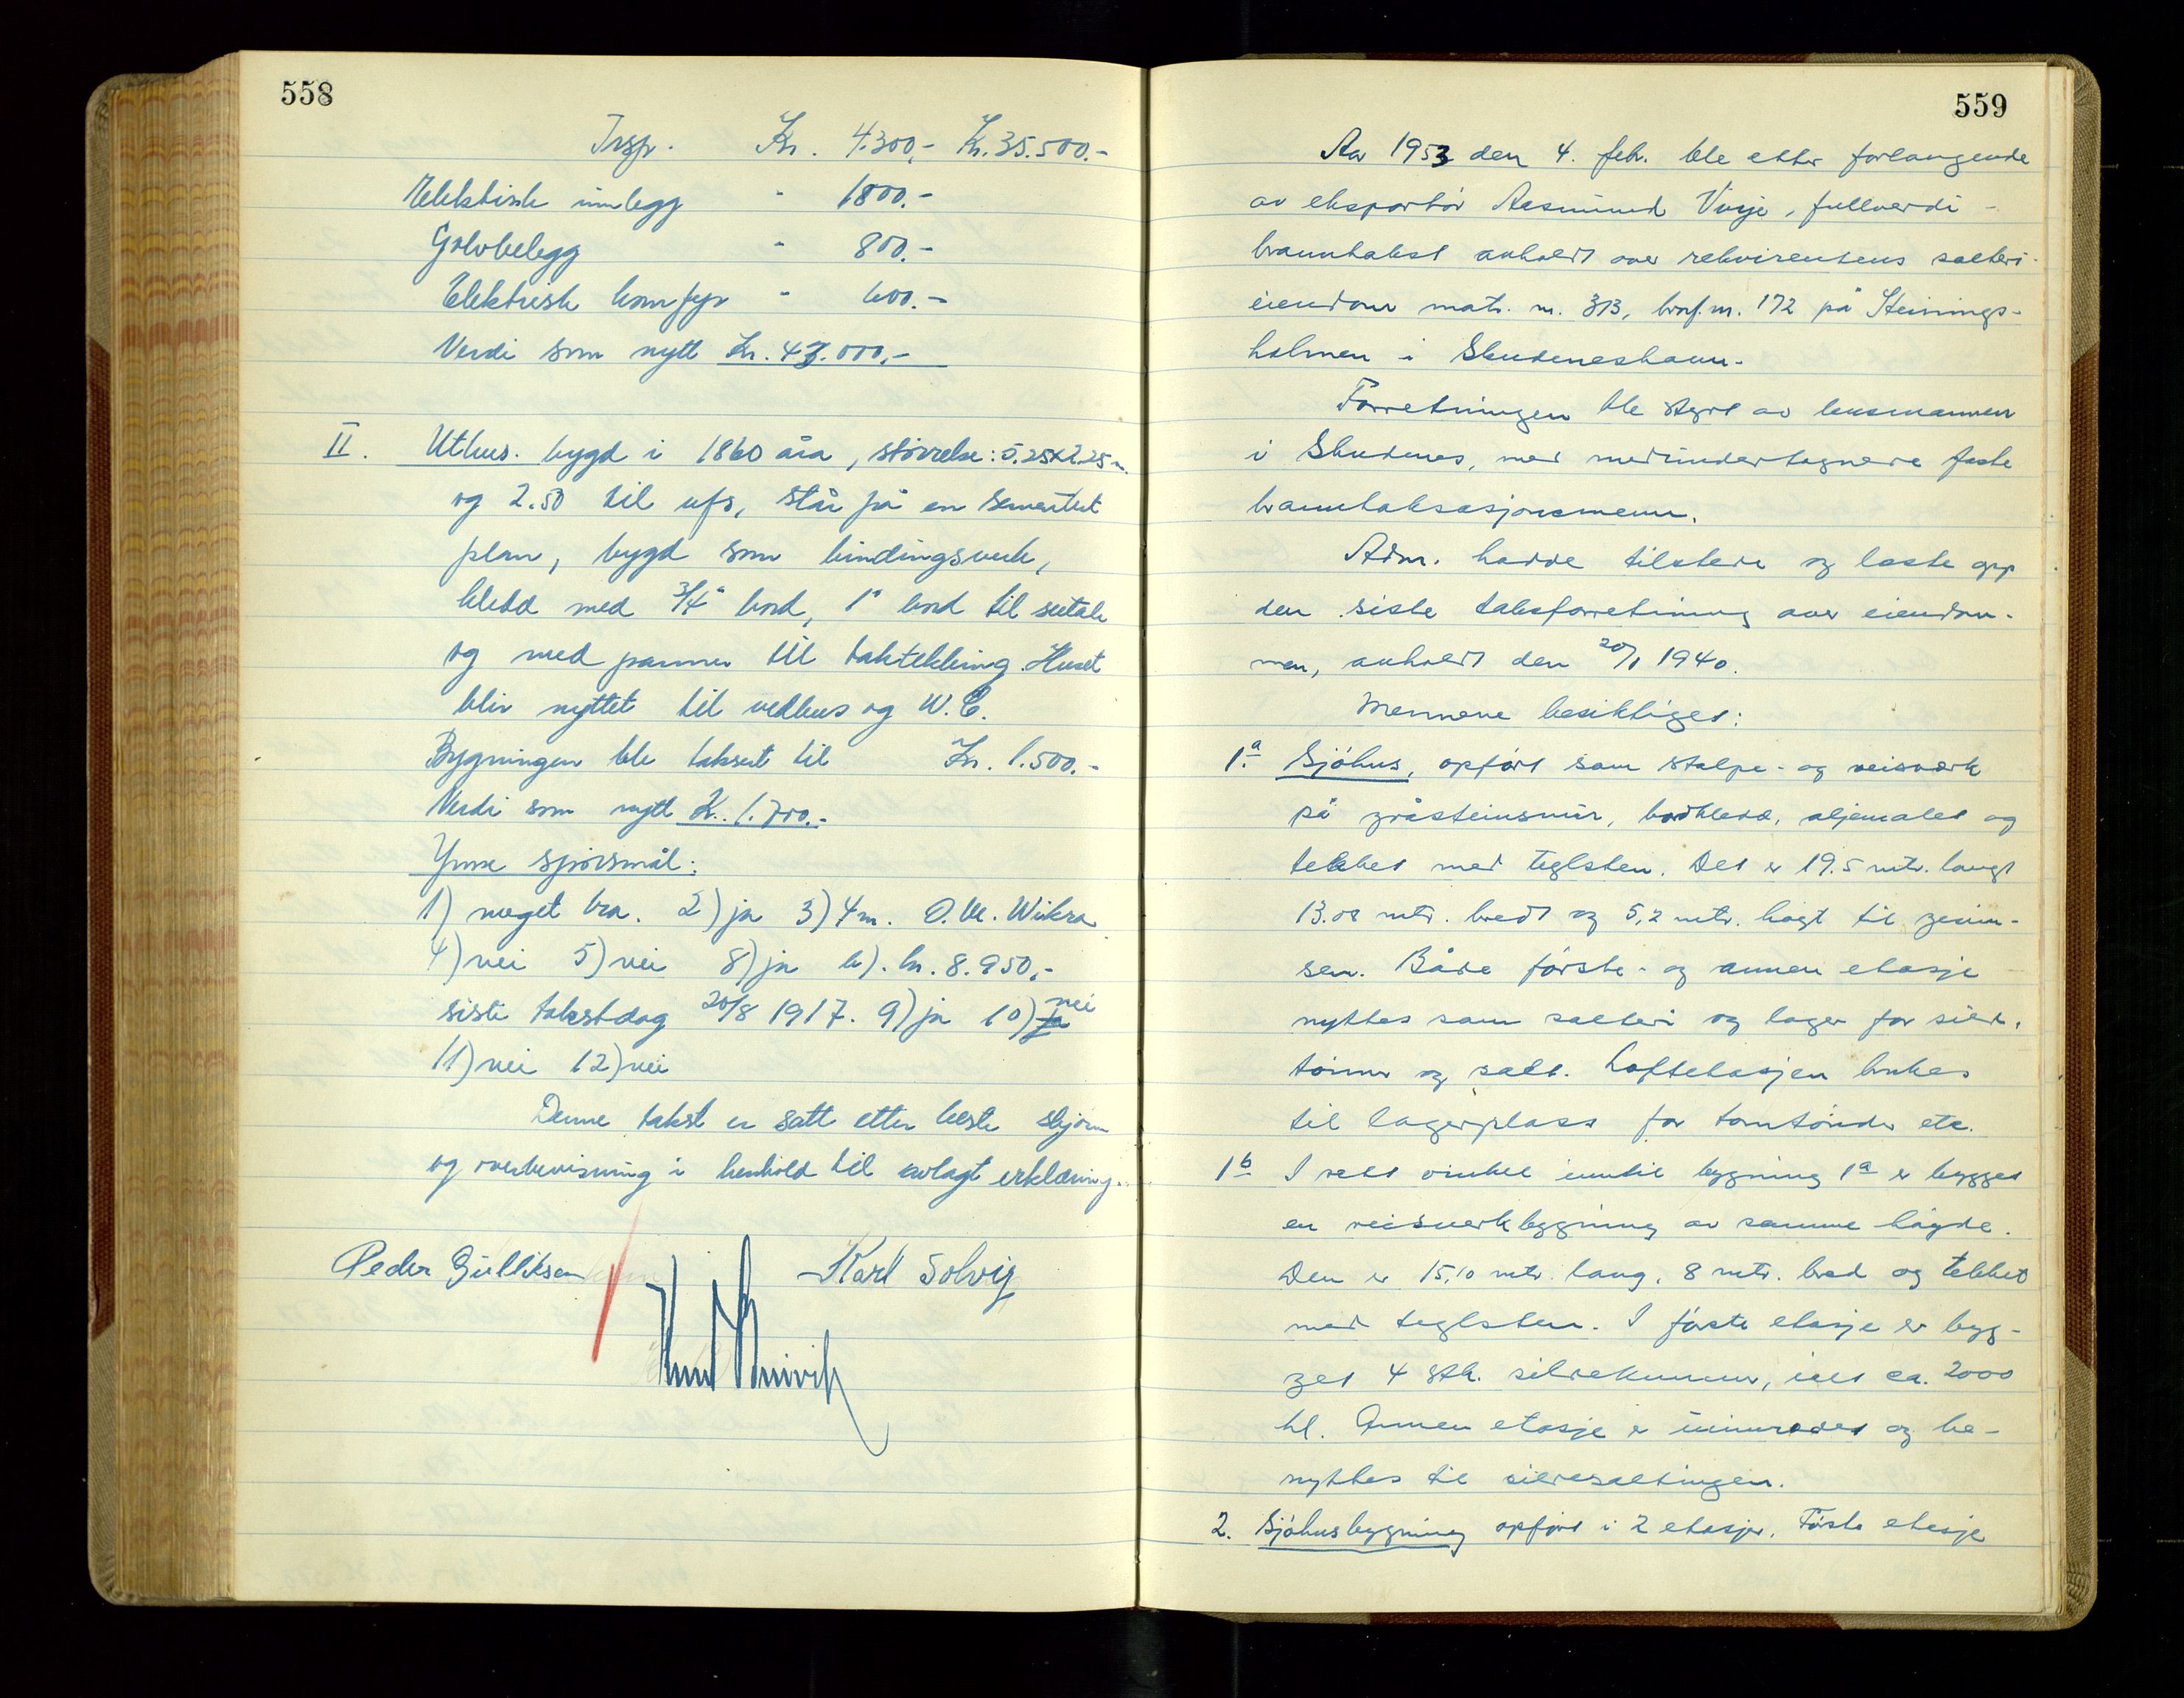 558
Trsp. Kr. 4.300,- Kr. 35.500.-
Elektrisk innlegg " 1800.-
Golvbelegg " 800.-
Elektrisk komfyr " 600.-
Verdi som nytt Kr. 43.000,-
II. Uthus. bygd i 1860 åra, størrelse: 5.25x2.25 m.
og 2.50 til ufs, står på en sementert
plan, bygd som bindingsverk,
kledd med 3/4" bord, 1" bord til sutak
og med panner til taktekking. Huset
blir nyttet til vedhus og W.C.
Bygningen ble taksert til Kr. 1.500.-
Verdi som nytt K. 1.700.-
Ymse spörsmål:
1) meget bra. 2) ja 3) 4 m. O. M. Wikra
4) nei 5) nei 8) ja b). kr. 8.950,-
siste takstdag 20/8 1917. 9) ja 10) ja nei
11) nei 12) nei
Denne takst er satt etter beste skjönn
og overbevisning i henhold til avlagt erklæring.
Peder Gulliksen Karl Solvig
559
Aar 1953 den 4. feb. ble etter forlangende
av eksportör Aasmund Vinje, fullverdi-
branntakst avholdt over rekvirentens salteri-
eiendom matr. nr. 313, brnf. nr. 172 på Steinings-
holmen i Skudeneshavn.
Forretningen ble styrt av lensmannen
i Skudenes, med medundertegnede faste
branntaksasjonsmenn.
Adm. hadde tilstede og leste opp
den siste takstforretning over eiendom-
men, avholdt den 20/1 1940.
Mennene besiktiget:
1.a Sjöhus, opfört som stolpe- og reisverk
på gråsteinsmur, bordkledd, oljemalet og
tekket med teglsten. Det er 19.5 mtr. langt
13.08 mtr. bredt og 5,2 mtr. högt til gesim-
sen. Både förste- og annen etasje
nyttes som salteri og lager for sild,
tönner og salt. Loftetasjen brukes
til lagerplass for tomtönder etc.
1b I rett vinkel inntil bygning 1a er bygget
en reisverkbygning av samme höyde.
Den er 15,10 mtr. lang, 8 mtr. bred og tekket
med teglsten. I förste etasje er byg-
get 4 stk. sildekummer, ialt ca. 2000
hl. Annen etasje er uinnredet og be-
nyttes til sildesaltingen.
2. Sjöhusbygning opfört i 2 etasjer. Förste etasje